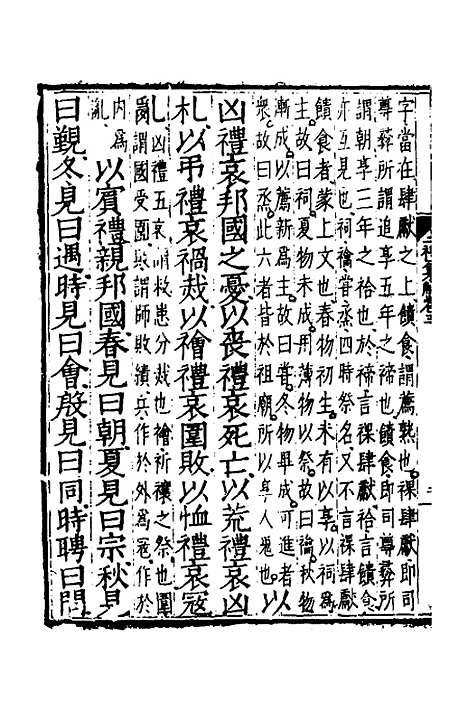 字當在肆獻之上饋食謂薦熟也祼肆獻即司
尊彝所謂追享五年之禘也饋食即司尊彝所
謂朝享三年之祫也於禘言祼肆獻祫言饋食
亦互見也祠禴嘗烝四時祭名又不言祼肆獻
饋食者蒙上文也春物初生未有以享以祠為
主故曰祠夏物未成用薄物以祭故曰禴秋物
漸成以薦新為主故曰嘗冬物畢成可進者
衆故曰烝此六者皆於祖廟所以享人鬼也以
凶禮哀邦國之憂以喪禮哀死亡以荒禮哀凶
札以弔禮哀禍烖以禬禮哀圍敗以恤禮哀寇
亂凶禮五哀謂救患分烖也禬祈禳之祭也圍
謂國受圍敗謂師敗績兵作於外為寇作於
內為亂以賓禮親邦國春見曰朝夏見曰宗秋見
曰覲冬見曰遇時見曰會殷見曰同時聘曰問